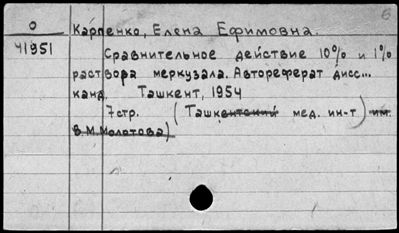 6
О Карпенко, Елена Ефимовна.
41951 Сравнительное действие 10% и 1%
раствора меркузала. Автореферат дисс...
канд. Ташкент, 1954
7стр. (Ташкентский мед. ин-т) им.
В.М.Молотова)